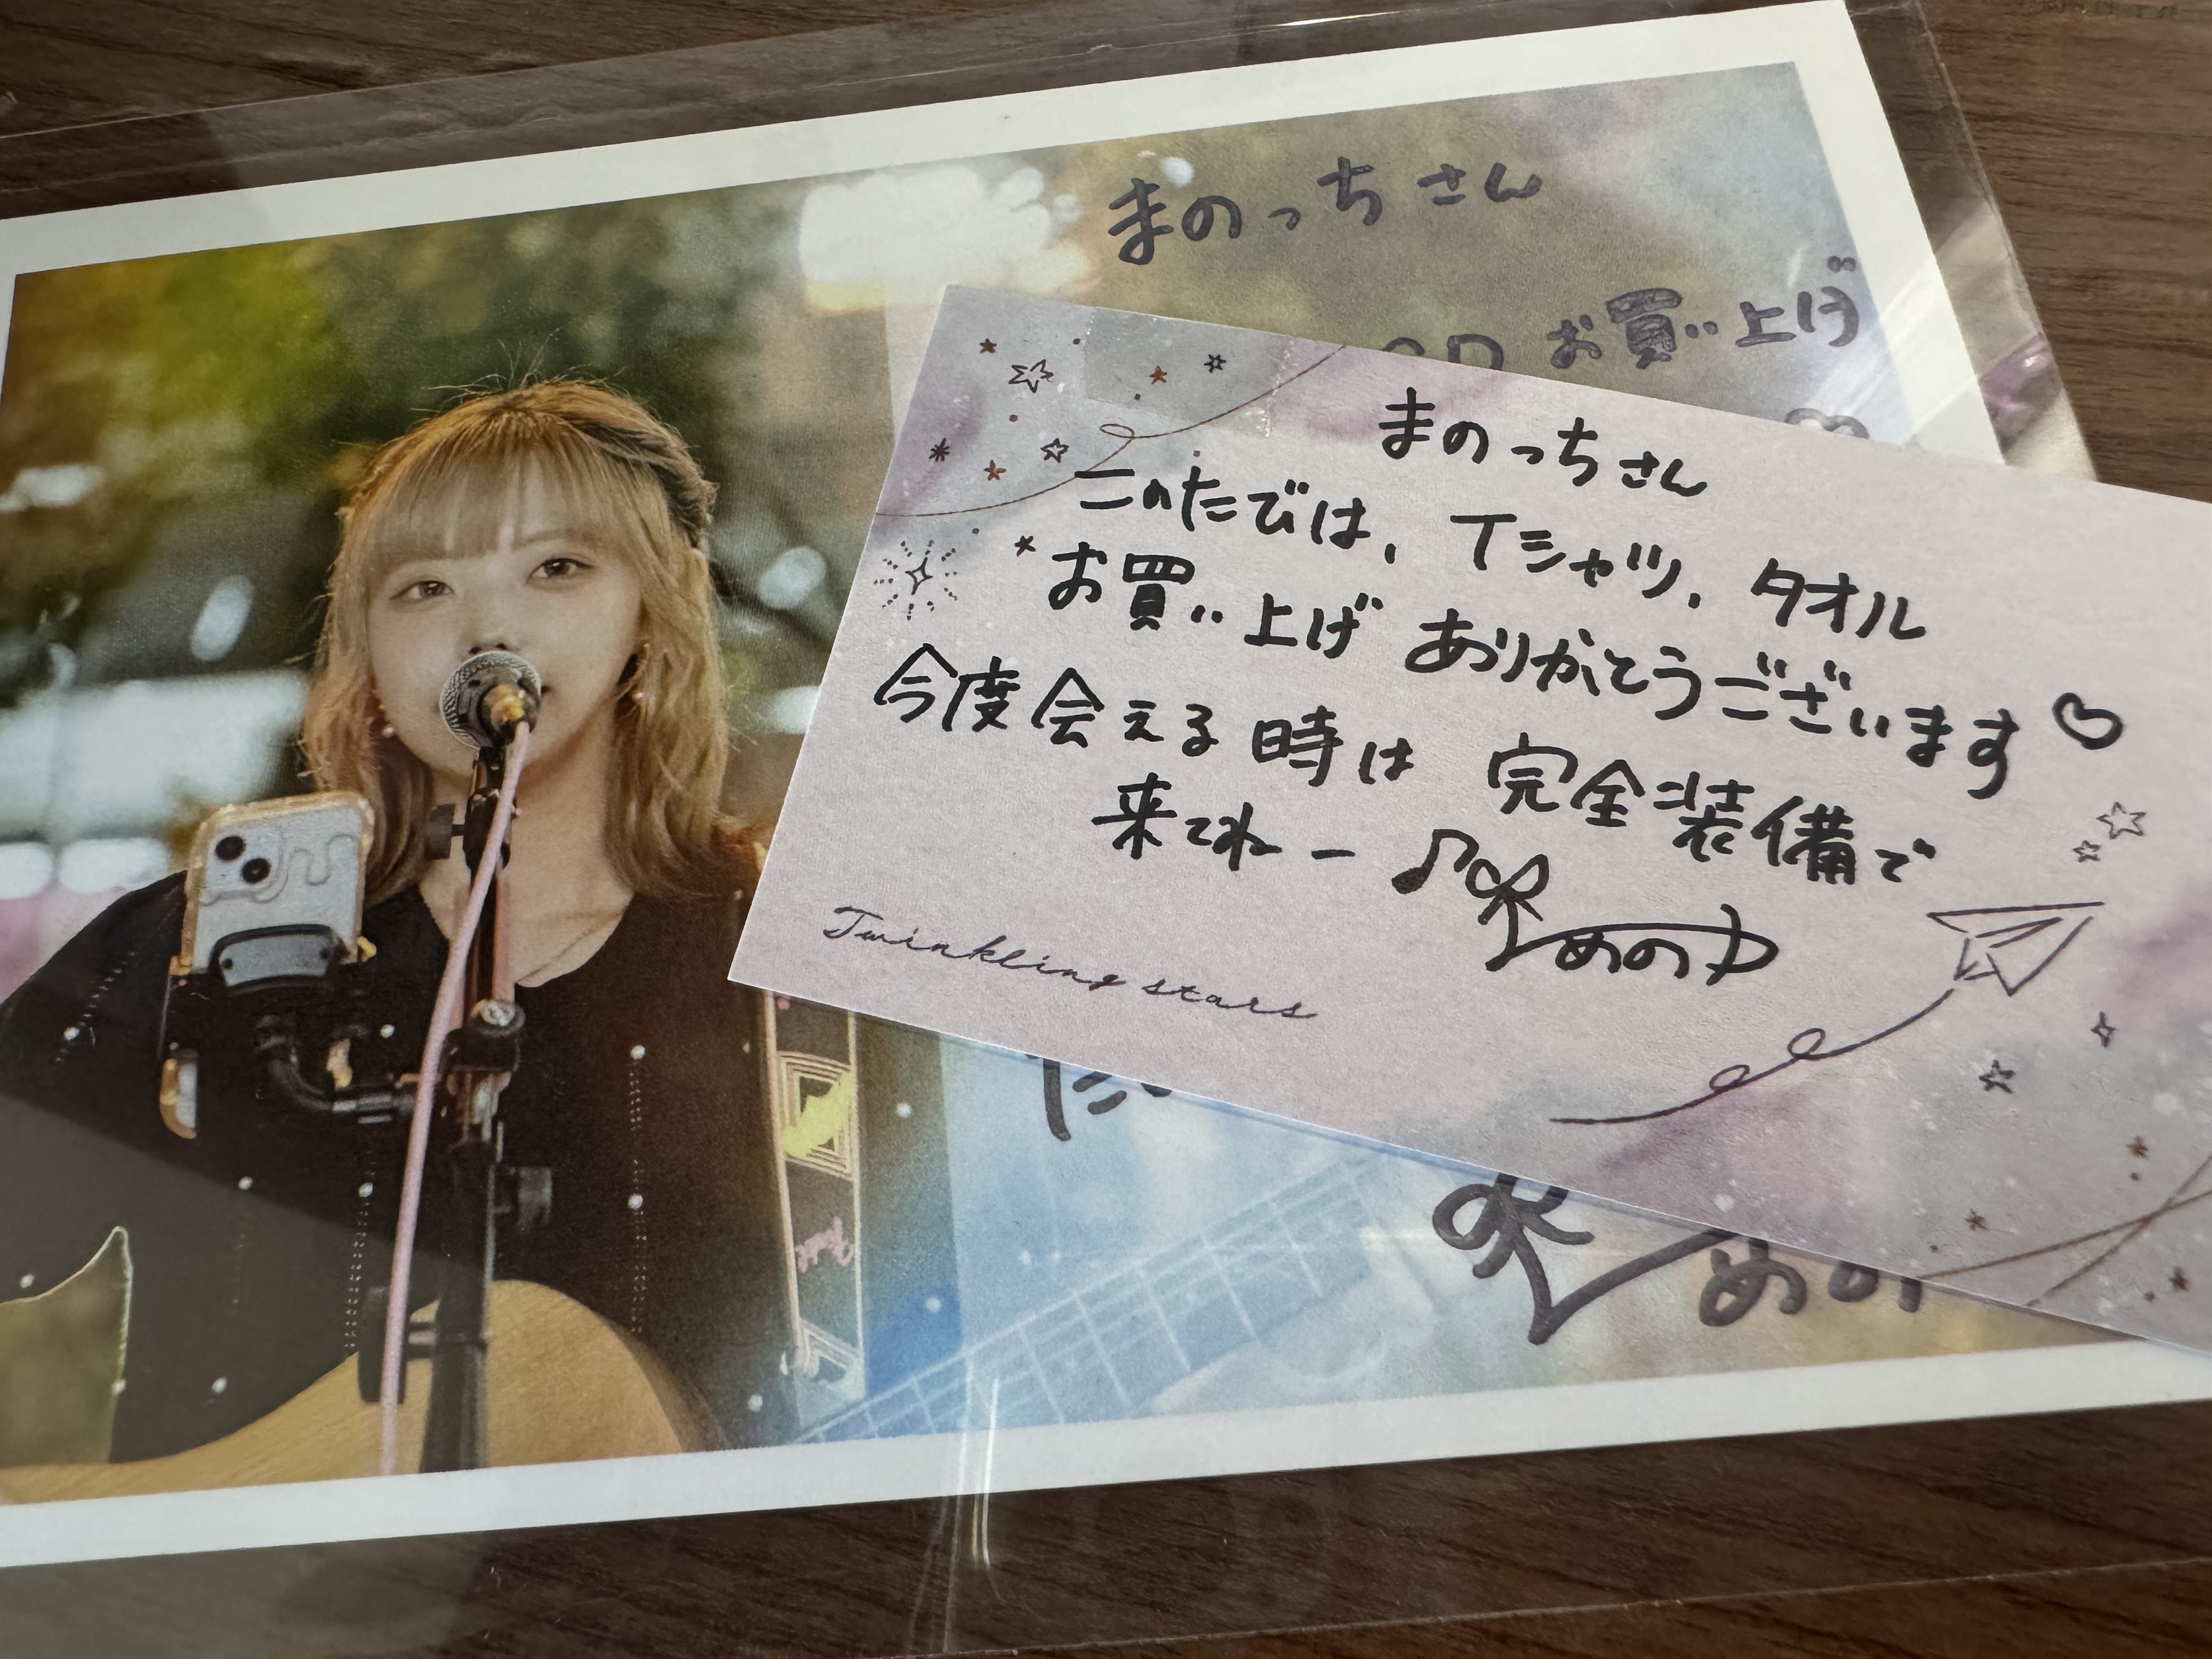 まのっちさん
お買い上げ
まのっちさん
このたびは、Tシャツ、タオル
お買い上げ ありがとうございます♡
今度会える時は 完全装備で
来てねー♪
Twinkling stars